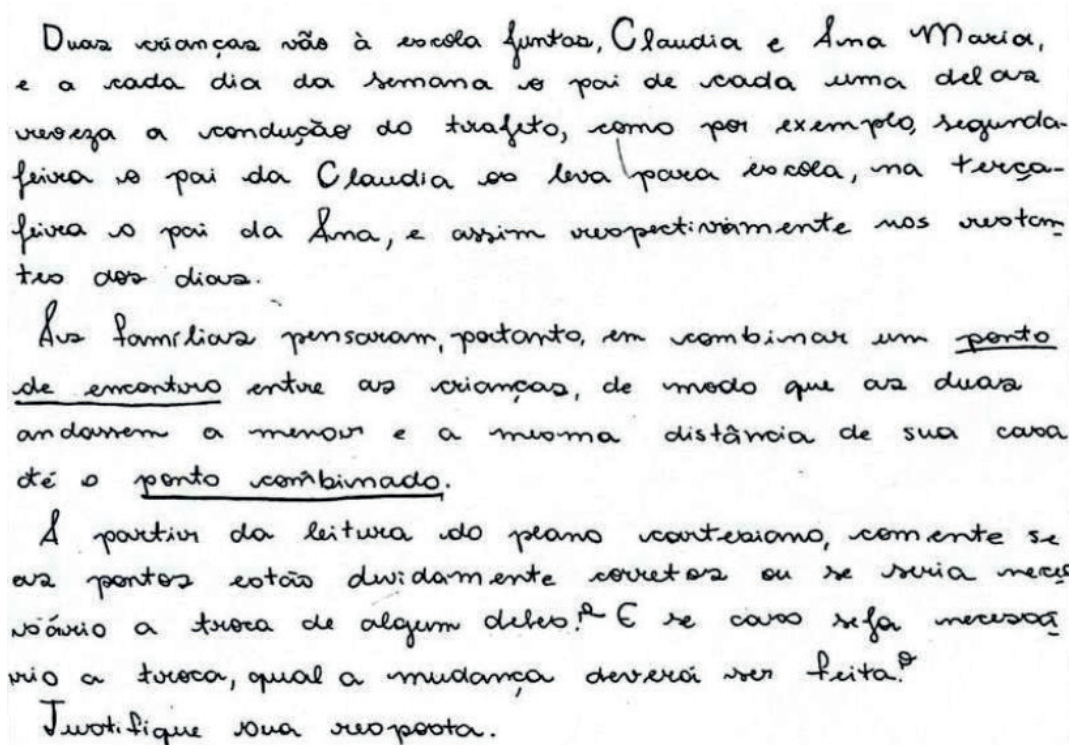 Duas crianças vão à escola juntas, Claudia e Ana Maria,
e a cada dia da semana o pai de cada uma delas
reveza a condução do trajeto, como por exemplo, segunda-
feira o pai da Claudia as leva para escola, na terça-
feira o pai da Ana, e assim respectivamente nos restan-
tes dos dias.
As famílias pensaram, portanto, em combinar um ponto
de encontro entre as crianças, de modo que as duas
andassem a menor e a mesma distância de sua casa
até o ponto combinado.
A partir da leitura do plano cartesiano, comente se
os pontos estão devidamente corretos ou se seria neces
sário a troca de algum deles? E se caso seja necessá
rio a troca, qual a mudança deverá ser feita?
Justifique sua resposta.